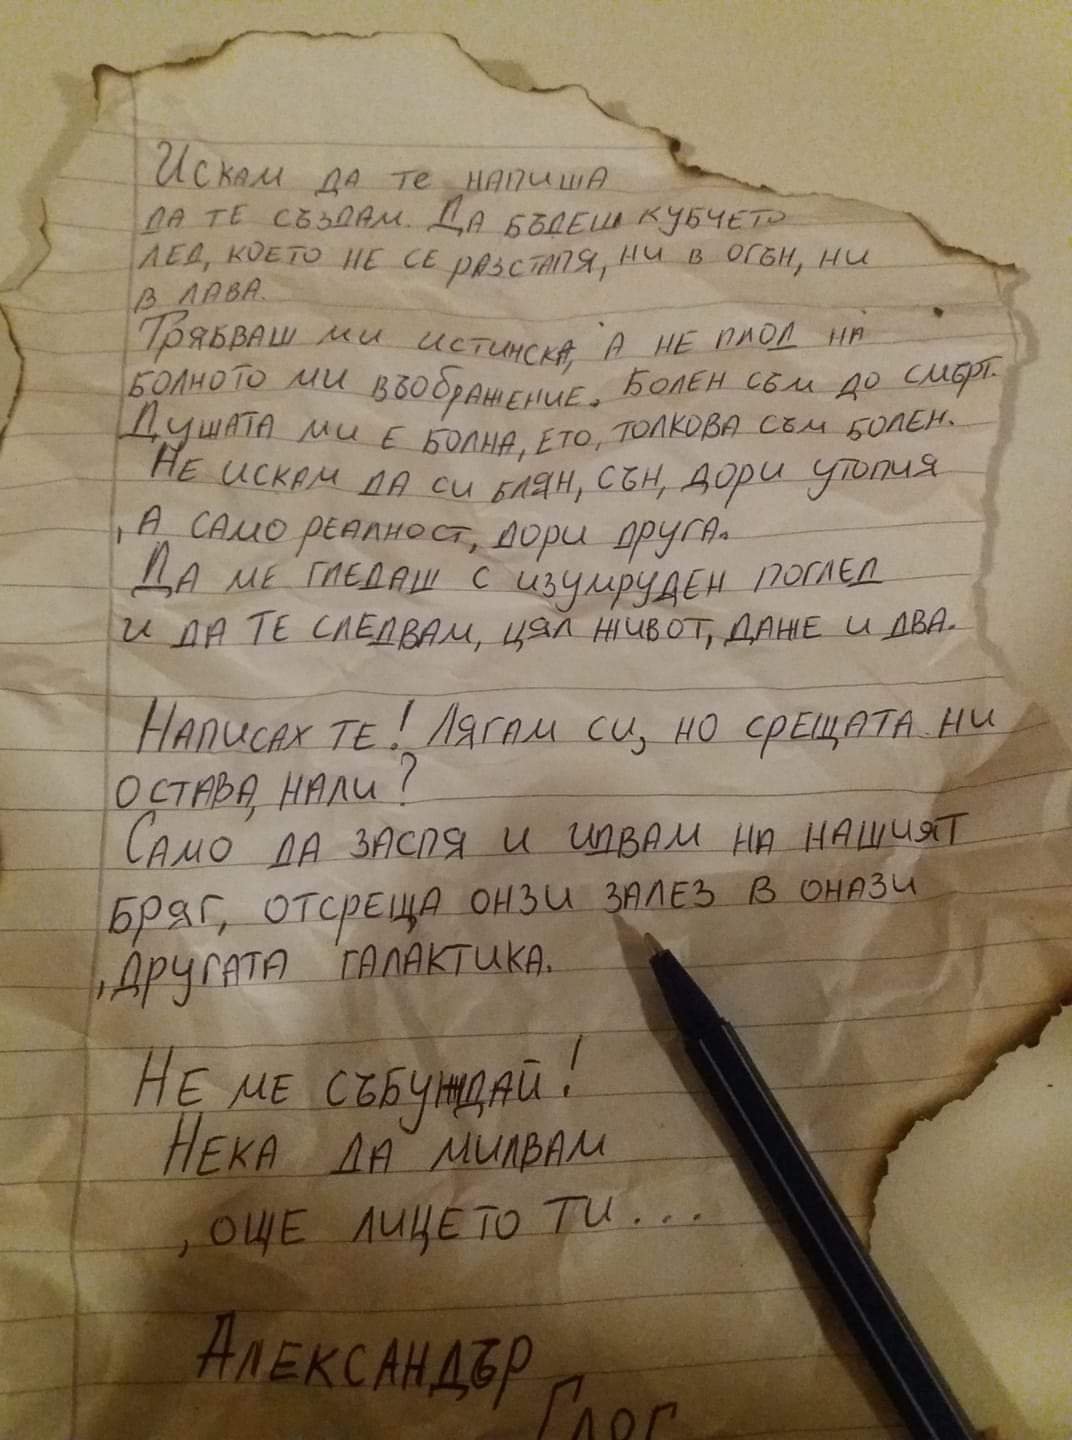 Искам да те напиша
да те създам. Да бъдеш кубчето
лед, което не се разстапя, ни в огън, ни
в лава.
Трябваш ми истинска, а не плод на
болното ми въображение. Болен съм до смърт.
Душата ми е болна, ето, толкова съм болен.
Не искам да си блян, сън, дори утопия
, а само реалност, дори друга.
Да ме гледаш с изумруден поглед
и да те следвам, цял живот, даже и два.
Написах те! Лягам си, но срещата ни
остава, нали?
Само да заспя и идвам на нашият
бряг, отсреща онзи залез в онази
, другата галактика.
Не ме събуждай!
Нека да милвам
, още лицето ти...
Александър
Глог